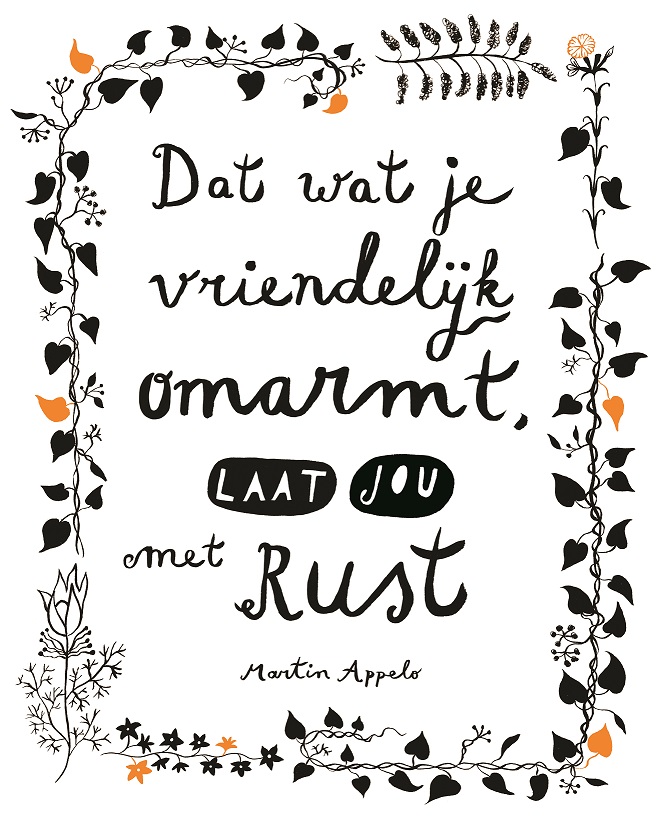 Dat wat je
vriendelijk
omarmt,
LAAT JOU
met Rust
Martin Appelo